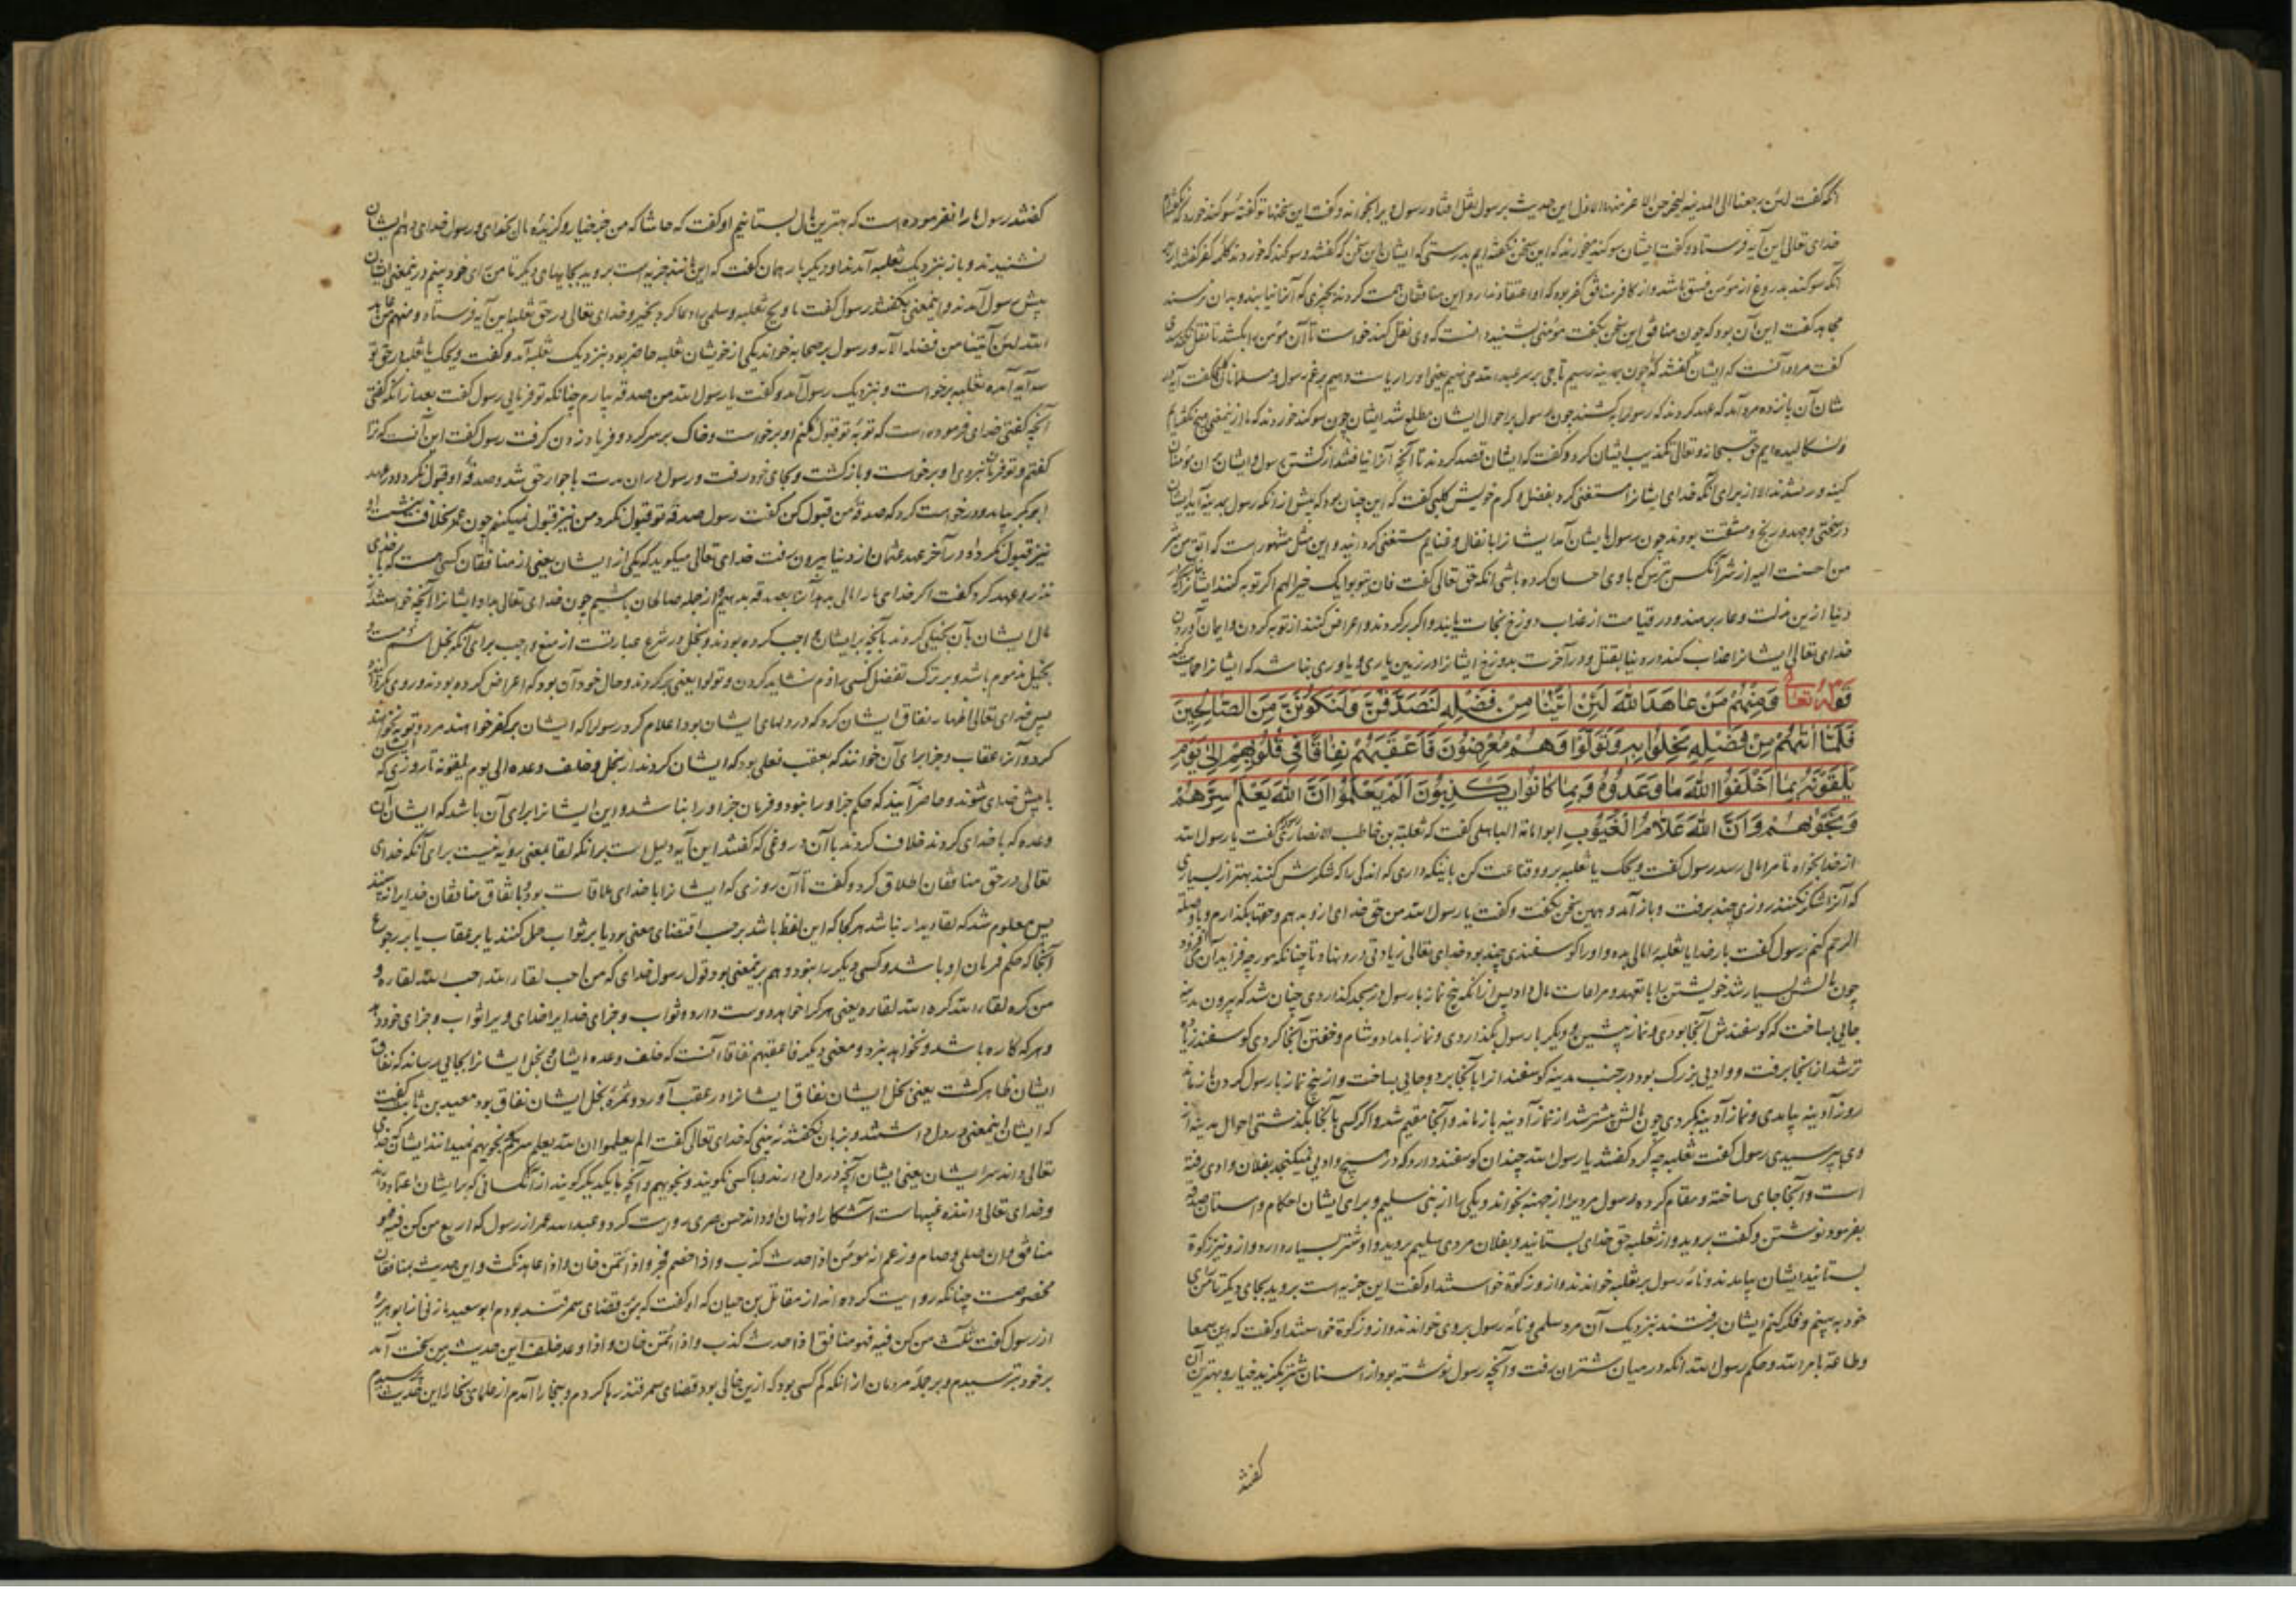 انکه گفت لئن رجعنا الی المدینه لیخرجن الاعز منها الاذل این حدیث برسول نقل افتاد رسول ویرا بخواند و گفت این سخنها تو گفته سوکند خورد که
خدای تعالی این آیه فرستاد و گفت ایشان سوکند میخورند که این سخن نکفته‌ایم بدرستی که ایشان این سخن که گفتند و سوکند که خوردند کلمه کفر کفتند
آنکه سوکند بدروغ از مؤمن فسق باشد و از کافر منافق کفر بود که او اعتقاد ندارد این منافقان همت کردند بچیزی که آنرا نیابند و بدان نرسند
مجاهد گفت این آن بود که چون منافق این سخن بگفت مؤمنی بشنید دانست که وی نقل کند خواست تا آن مؤمن را بکشد تا نقل نکند
گفت مراد آنست که ایشان گفتند که چون بمدینه رسیم تاجی بر سر عبدالله می نهیم یعنی او را ریاست دهیم برغم رسول و مسلمانان کلبی گفت آیه در
شان آن پانزده مرد آمد که عهد کردند که رسول را بکشند چون رسول بر احوال ایشان مطلع شد ایشان چون سوکند خوردند که ما ازینمعنی هیچ نکفته‌ایم
و نسکالیده‌ایم حق سبحانه و تعالی تکذیب ایشان کرد و گفت که ایشان قصد کردند تا آنچه آنرا نیافتند از کشتن رسول و ایشان بر ان مؤمنان
کینه ور نشدند الا از برای آنکه خدای ایشانرا مستغنی کرد بفضل و کرم خویش کلبی گفت که این چنان بود که پیش از آنکه رسول بمدینه آید ایشان
در سختی و جهد و رنج و مشقت بودند چون رسول بایشان آمد ایشانرا بانفال و غنایم مستغنی کردانید و این مثل مشهور است که اتق من شر
من احسنت الیه از شر آنکس بترس که با وی احسان کرده باشی انکه حق تعالی گفت فان یتوبوا یک خیرا لهم اگر توبه کنند ایشانرا
دنیا ازین مذلت و عار برهند و در قیامت از عذاب دوزخ نجات یابند و اگر برگردند و اعراض کنند از توبه کردن و ایمان آوردن
خدای تعالی ایشانرا عذاب کند در دنیا بقتل و در آخرت بدوزخ ایشانرا در زمین یاری و یاوری نباشد که ایشانرا حمایت کند
قوله تعالی وَمِنْهُمْ مَنْ عَاهَدَ اللَّهَ لَئِنْ آتَیْنَا مِنْ فَضْلِهِ لَنَصَّدَّقَنَّ وَلَنَکُونَنَّ مِنَ الصَّالِحِینَ
فَلَمَّا آتَیهُمْ مِنْ فَضْلِهِ بَخِلُوا بِهِ وَتَوَلَّوْا وَهُمْ مُعْرِضُونَ فَأَعْقَبَهُمْ نِفَاقًا فِی قُلُوبِهِمْ إِلَی یَوْمِ
یَلْقَوْنَهُ بِمَا أَخْلَفُوا اللَّهَ مَا وَعَدُوهُ وَبِمَا کَانُوا یَکْذِبُونَ أَلَمْ یَعْلَمُوا أَنَّ اللَّهَ یَعْلَمُ سِرَّهُمْ
وَنَجْوٰیهُمْ وَأَنَّ اللَّهَ عَلَّامُ الْغُیُوبِ ابو امامة الباهلی گفت که ثعلبة بن حاطب الانصاری گفت یا رسول الله
از خدا بخواه تا مرا مالی رسد رسول گفت ویحک یا ثعلبه برو و قناعت کن باینکه داری که اندکی را که شکرش کنند بهتر از بسیاری
که آنرا شکر نکنند روزی چند برفت و باز آمد و همین سخن بگفت و گفت یا رسول الله من حق خدای ازو بدهم و حقها بگذارم و با وصله
الرحم کنم رسول گفت بار خدایا ثعلبه را مالی بده و او را کوسفندی چند بود خدای تعالی زیادتی در و نهاد تا چنانکه مورچه فزاید آن می‌فزود
چون مالش بسیار شد خویشتن را با تعهد و مراعات مال داد پس از آنکه پنج نماز با رسول در مسجد کذاردی چنان شد که بیرون مدینه
جایی بساخت که کوسفندش آنجا بودی و نماز پیشین و دیگر با رسول بگذاردی و نماز بامداد و شام و خفتن آنجا کردی کوسفند زیادت
تر شد از آنجا برفت و وادیی بزرک بود در جنب مدینه کوسفند انرا بآنجا برد و جایی بساخت و از پنج نماز با رسول کردن باز ماند
روز آدینه بیامدی و نماز آدینه بکردی چون مالش بیشتر شد از نماز آدینه باز ماند و آنجا مقیم شد و اگر کسی بآنجا بگذشتی احوال مدینه از
وی بپرسیدی رسول گفت ثعلبه چه کرد گفتند یا رسول الله چندان کوسفند دارد که در هیچ وادیی نمیکنجد بفلان وادی رفته
است و آنجا جای ساخته و مقام کرده رسول مردیرا از جهینه بخواند و یکی را از بنی سلیم و برای ایشان احکام و استان صدقه
بفرمود نوشتن و گفت بروید و از ثعلبه حق خدای بستانید و بفلان مردی سلیم بروید و او شتر بسیار دارد و ازو نیز زکوة
بستانید ایشان بیامدند و نامه رسول بر ثعلبه خواندند و ازو زکوة خواستند او گفت این جزیه است بروید بجای دیگر تا من رای
خود ببینم و فکر کنم ایشان برفتند بنزدیک آن مرد سلمی و نامه رسول بر وی خواندند و ازو زکوة خواستند او گفت که این سمعا
و طاعة بامر الله و حکم رسول الله انکه در میان شتران برفت و آنچه رسول نوشته بود از استان شتر بگزید خیار و بهترین آن
گفتند
گفتند رسول ما را نفرموده است که بهترین مال بستانیم او گفت که حاشا که من جز خیار و کزیده مال بخدای و رسول خدای دهم ایشان
نشنیدند و باز بنزدیک ثعلبه آمدند او دیگر بار همان گفت که این مانند جزیه است بروید بجایهای دیگر تا من رای خود ببینم درینمعنی ایشان
پیش رسول آمدند و اینمعنی بگفتند رسول گفت یا ویح ثعلبه و سلمی را دعا کرد بخیر و خدای تعالی در حق ثعلبه این آیه فرستاد و منهم من عاهد
الله لئن آتینا من فضله الآیه و رسول بر صحابه خواند یکی از خویشان ثعلبه حاضر بود بنزدیک ثعلبه آمد و گفت ویحک یا ثعلبه در حق تو
آیه آمده ثعلبه برخواست و بنزدیک رسول آمد و گفت یا رسول الله من صدقه بیارم چنانکه تو فرمایی رسول گفت بعد از آنکه گفتی
آنچه گفتی خدای فرموده است که توبه تو قبول نکنم او برخواست و خاک بر سر کرد و فریاد زدن گرفت رسول گفت این آنست که ترا
گفتم و تو فرمان نبردی او برخواست و بازگشت و بجای خود رفت و رسول در ان مدت با جوار حق شد و صدقه او قبول نکرد و در عهد
ابوبکر بیامد و درخواست کرد که صدقه من قبول کن گفت رسول صدقه تو قبول نکرد من نیز قبول نمیکنم چون عمر بخلافت بنشست او
نیز قبول نکرد و در آخر عهد عثمان از دنیا بیرون رفت خدای تعالی میکوید که یکی از ایشان یعنی از منافقان کسی هست که با خدای
نذر و عهد کرد گفت اگر خدای ما را مالی بدهد آنرا بصدقه بدهیم و از جمله صالحان باشیم چون خدای تعالی بداد ایشانرا آنچه خواستند
مال ایشان بآن بخیلی کردند بآنچه بر ایشان واجب کرده بودند و بخل در شرع عبارتست از منع واجب برای آنکه بخل اسم ذمست و
بخیل مذموم باشد و بر ترک تفضل کسی را ذم نشاید کردن و تولوا یعنی برگردند و حال خود آن بود که اعراض کرده بودند و روی بگردانیده
پس خدای تعالی اظهار نفاق ایشان کرد که در دلهای ایشان بود و اعلام کرد رسول را که ایشان بر کفر خواهند مرد و توبه نخواهند
کرد و آنرا عقاب و جزا برای آن خوانند که بعقب فعلی بود که ایشان کردند از بخل و خلف وعده الی یوم یلقونه تا روزی که ایشان
با پیش خدای شوند و حاضر آیند که حکم جز او را نبود و فرمان جز او را نباشد و این ایشانرا برای آن باشد که ایشان آن
وعده که با خدای کردند خلاف کردند با آن دروغی که گفتند این آیه دلیل است برانکه لقا بمعنی رویه نیست برای آنکه خدای
تعالی در حق منافقان اطلاق کرد و گفت تا آن روزی که ایشانرا با خدای ملاقات بود باتفاق منافقان خدایرا نبینند
پس معلوم شد که لقا دیدار نباشد هر کجا که این لفظ باشد بر حسب اقتضای معنی بود یا بر ثواب حمل کنند یا بر عقاب یا بر رجوع
آنجا که حکم فرمان او باشد و کسی دیگر را نبود و هم برینمعنی بود قول رسول خدای که من احب لقاء الله احب الله لقاءه و
من کره لقاء الله کره الله لقاءه یعنی هر که خواهد و دوست دارد ثواب و جزای خدایرا خدای ویرا ثواب و جزای خود دهد
و هر که کاره باشد و نخواهد بنزد و معنی دیگر فاعقبهم نفاقا آنست که خلف وعده ایشان و بخل ایشانرا بجایی رساند که نفاق
ایشان ظاهر گشت یعنی بخل ایشان نفاق ایشانرا در عقب آورد و ثمره بخل ایشان نفاق بود معبد بن ثابت گفت
که ایشان اینمعنی در دل داشتند و بزبان نگفتند نه بینی که خدای تعالی گفت الم یعلموا ان الله یعلم سرهم و نجویهم نمیدانند ایشان که خدای
تعالی داند سر ایشان یعنی ایشان آنچه در دل دارند و با کسی نکویند و نجویهم و آنچه با یکدیگر کویند از آنکسانی که بر ایشان اعتماد دارند
و خدای تعالی داننده غیبهاست آشکارا و نهان او داند حسن بصری روایت کرد و عبدالله عمر از رسول که اربع من کن فیه فهو
منافق و ان صلی و صام و زعم انه مؤمن اذا حدث کذب و اذا خصم فجر و اذا ائتمن خان و اذا عاهد نکث و این حدیث بمنافقان
مخصوصست چنانکه روایت کرده‌اند از مقاتل بن حیان که او گفت که من قضای سمرقند بودم ابو سعید مازنی از ابو هریره
از رسول گفت ثلث من کن فیه فهو منافق اذا حدث کذب و اذا ائتمن خان و اذا وعد خلف این حدیث بر من سخت آمد
بر خود بترسیدم و بر جمله مردمان از آنکه کم کسی بود که ازین خالی بود قضای سمرقند رها کردم و ببخارا آمدم از علمای بخارا این حدیث پرسیدم